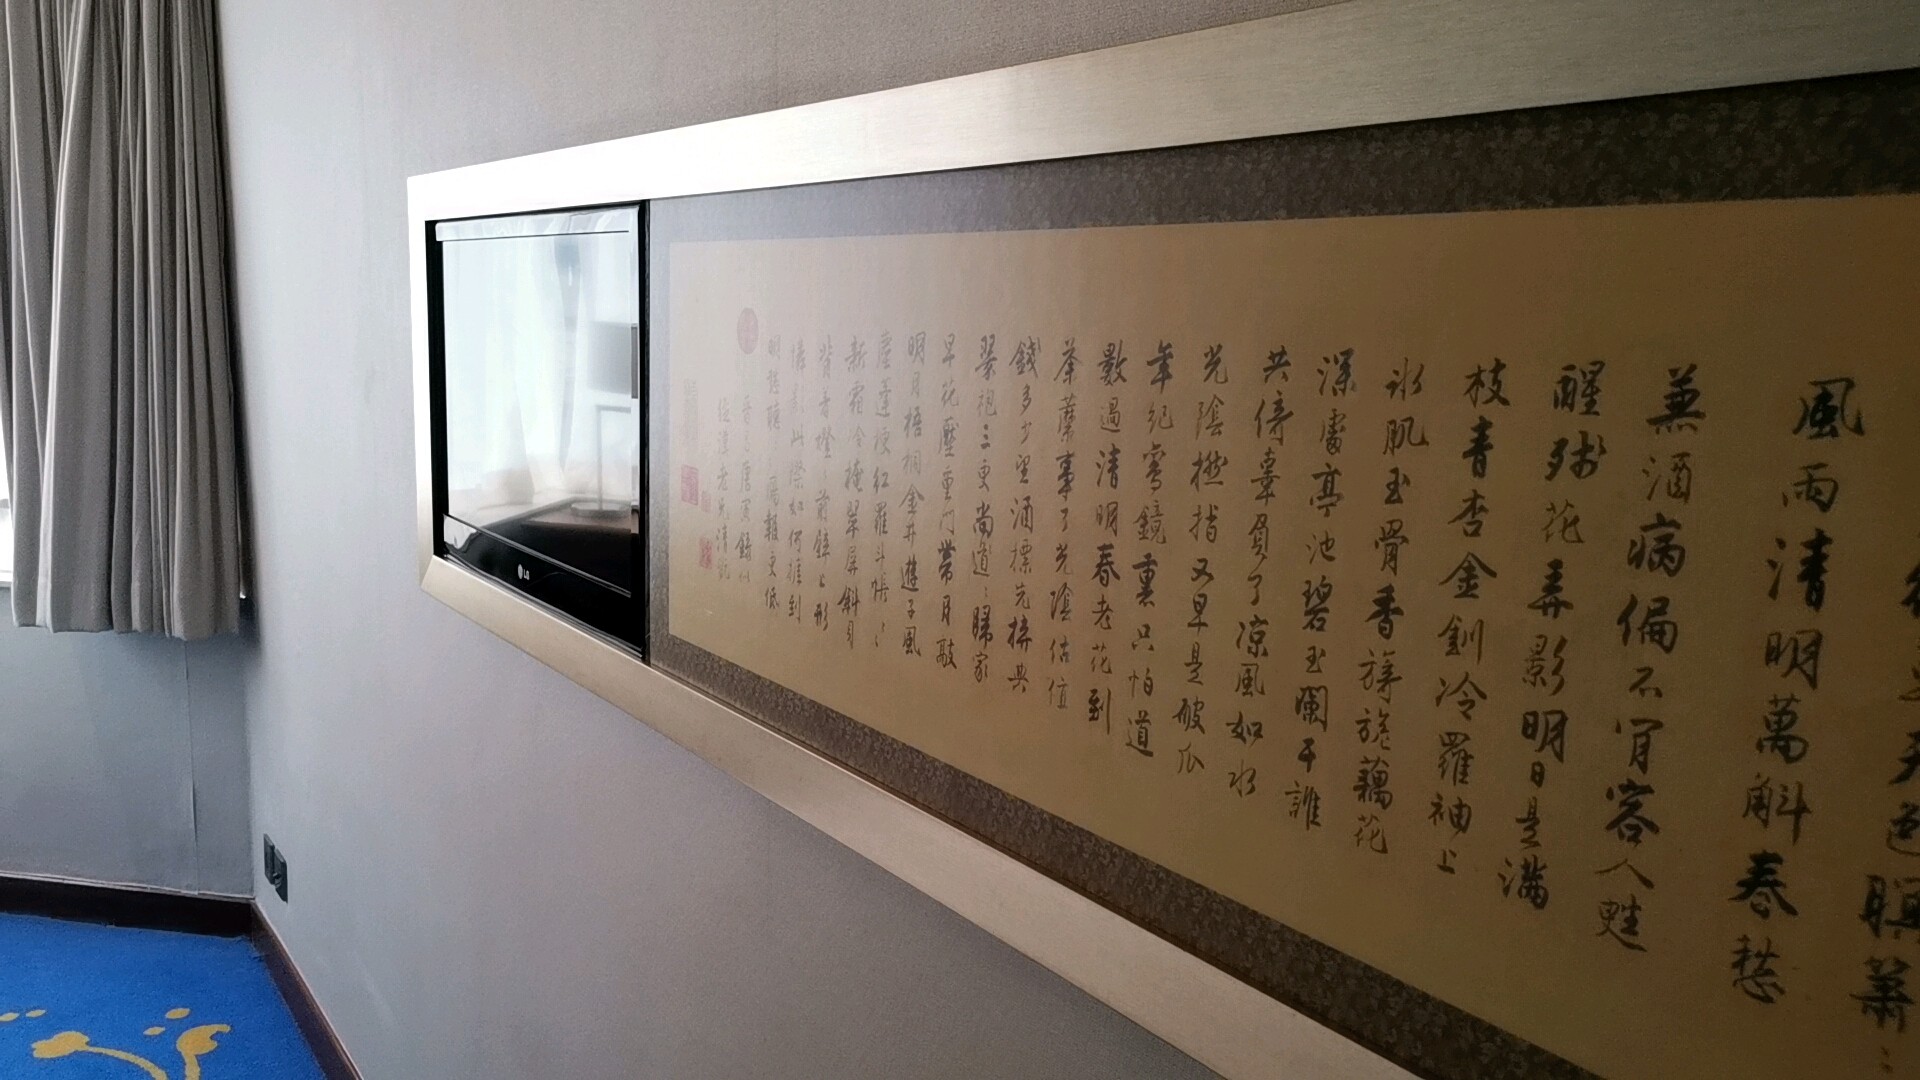 色暝萧
風雨清明萬斛春愁
兼酒病偏不肎容人甦
醒殘花弄影明日是滿
枝青杏金釧冷羅袖上
冰肌玉骨香旖旎藕花
深處亭池碧玉闌干誰
共倚辜負了凉風如水
光陰撚指又早是破瓜
年紀鸞鏡裏只怕道
數過清明春老花到
荼蘼事了光陰估值
錢多少望酒標先挤典
翠袍三更尚道歸家
早花壓重門帶月敲
明月梧桐金井遊子風
塵蓬梗紅羅斗帳
新霜冷掩翠屏斜月
背青燈前錄上形
影此際如何捱到
明聽 雁報更低
晉昌唐寅錄
老兄清玩
LG